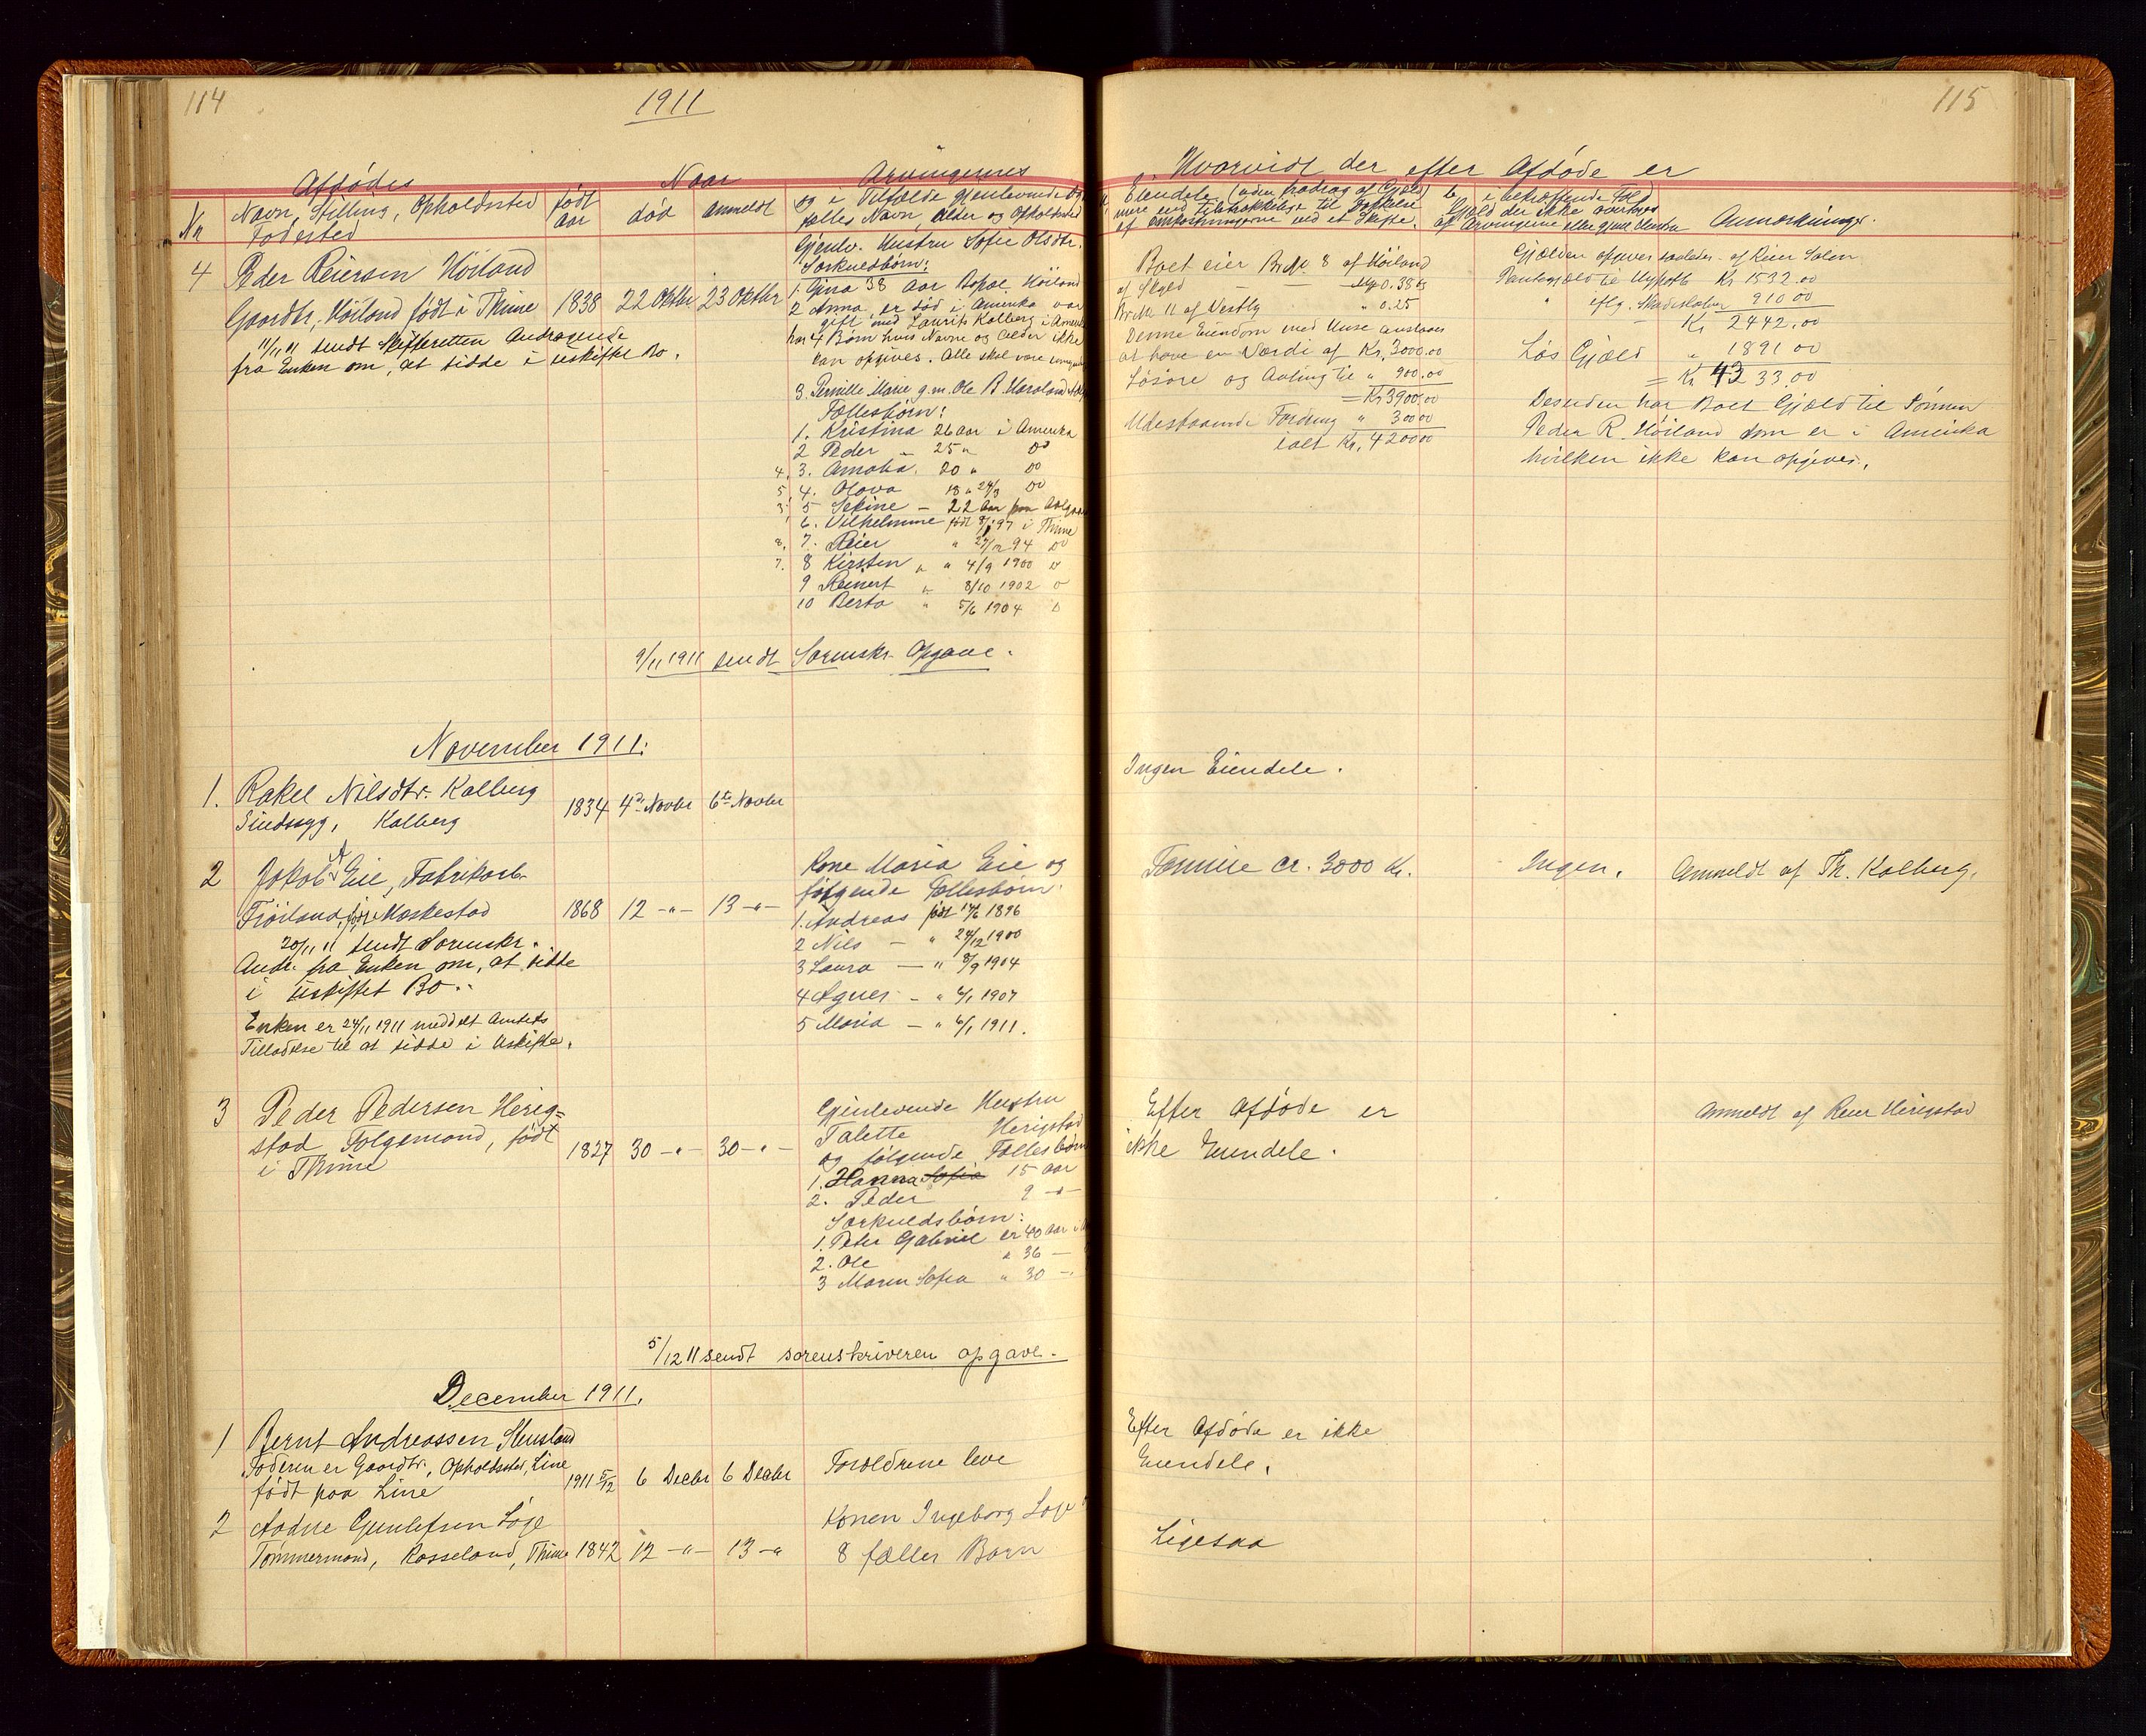 114
1911
Afdødes
Naar
Arvingernes
Nr
Navn, Stilling, Opholdssted
Fødested
født
aar
død
anmeldt
og i Tilfælde gjenlevende Ægte-
fælles Navn, Alder og Opholdssted
4
Peder Reiersen Höiland
Gaardbr, Höiland født i Thime
1838
22 Oktbr
23 Oktbr
11/11 11 sendt Skifteretten Andragende
fra Enken om, at sidde i uskiftet Bo.
Gjenlv. Hustru Sofie Olsdtr.
Særkuldsbörn:
1. Gina 38 Aar Bopæl Höiland
2 Anna, er död i Amerika var
gift med Laurits Kalberg i Amerika
har 4 Børn hvis Navne og Alder ikke
kan opgives. Alle skal være
3. Pernille Marie g.m. Ole B. Haraland
Fællesbörn:
1. Kristina 26 aar i Amerika
2 Peder - 25 " Do
4, 3. Amalia, 20 " Do
5 4. Olava 18 " 24/3 Do
3, 5 Sekine - 22 Aar paa
6. Vilhelmine født 97 i Thime
2, 7. Reier " 27/12 94 Do
7. 8 Kirsten " " 4/9 1900
9 Reinert " 8/10 1902
10 Berta " 5/6 1904
9/11 1911 sendt Sorenskr. Opgave.
November 1911:
1. Rakel Nilsdtr. Kalberg
Sindssyg, Kalberg
1834 4de Novbr 6te Novbr
2 Jakob A Eie, Fabrikarb.
Fröiland, født i Moskestad
1868 12 -"- 13 -"-
20/11 11 sendt Sorenskr.
Andr. fra Enken om, at sidde
i uskiftet Bo.
Enken er 24/11 1911 meddelt Amtets
Tilladelse til at sidde i Uskifte.
Kone Maria Eie og
følgende Fællesbörn:
1. Andreas født 17/6 1896
2 Nils - " 24/12 1900
3 Laura - " 8/9 1904
4 Agnes - " 6/1 1907
5 Maria - " 6/1 1911.
3 Peder Pedersen Herig=
stad Folgemand, født
i Thime
1827 30 -"- 30 -"-
Gjenlevende Hustru
Talette Herigstad
og følgende Fællesbörn
1. Hanna Sofia 15 aar
2. Peder 9 -"-
Særkuldsbörn:
1. Peter Gabriel er 40 aar i
2. Ole " 36 -
3 Maren Sofia " 30 -
5/12 11 sendt sorenskriveren opgave.
December 1911.
1 Bernt Andreassen Skusland
Faderen er Gaardbr, Opholdssted, Line
født paa Line
1911 5/12 6 Decbr 6 Decbr
Forældrene leve
2 Aadne Gunlefsen Løge
Tømmermand, Rosseland, Thime 1842 12 -"- 13 -"
Konen Ingeborg Løge
8 fælles Børn
115
Hvorvidt der efter Afdøde er
a, Eiendele (uden fradrag af Gjæld)
mere end tilstrækkelige til Dækkelse
af Omkostningerne ved et Skifte.
b, i bekræftende Fald
Gjæld der ikke overtages
af Arvingerne eller gjenl. Ægtefælle
Anmærkninger.
Boet eier Br. No 8 af Höiland
af Skyld - - Mk 0.38
Br. No 11 af Vestly " 0.25
Denne Eiendom med Huse ansaaes
at have en Værdi af Kr. 3000.00
Løsøre og Avling til " 900.00
= Kr 3900.00
Udestaaende Fordring " 300 00
ialt Kr. 4200 00
Gjælden opgives saaledes af Reier Salen
Pantegjæld til Hypothb Kr 1532.00
" iflg. Skadesløsbr 910 00
Kr 2442.00
Løs Gjæld " 1891 00
= Kr 4333.00
Desuden har Boet Gjæld til Sønnen
Peder R. Höiland som er i Amerika
hvilken ikke kan opgives.
Ingen Eiendele.
Formue ca. 3000 Kr.
Ingen.
Anmeldt af Th. Kalberg.
Efter Afdøde er
ikke Eiendele.
Anmeldt af Reier Herigstad
Efter Afdøde er ikke
Eiendele.
Ligesaa